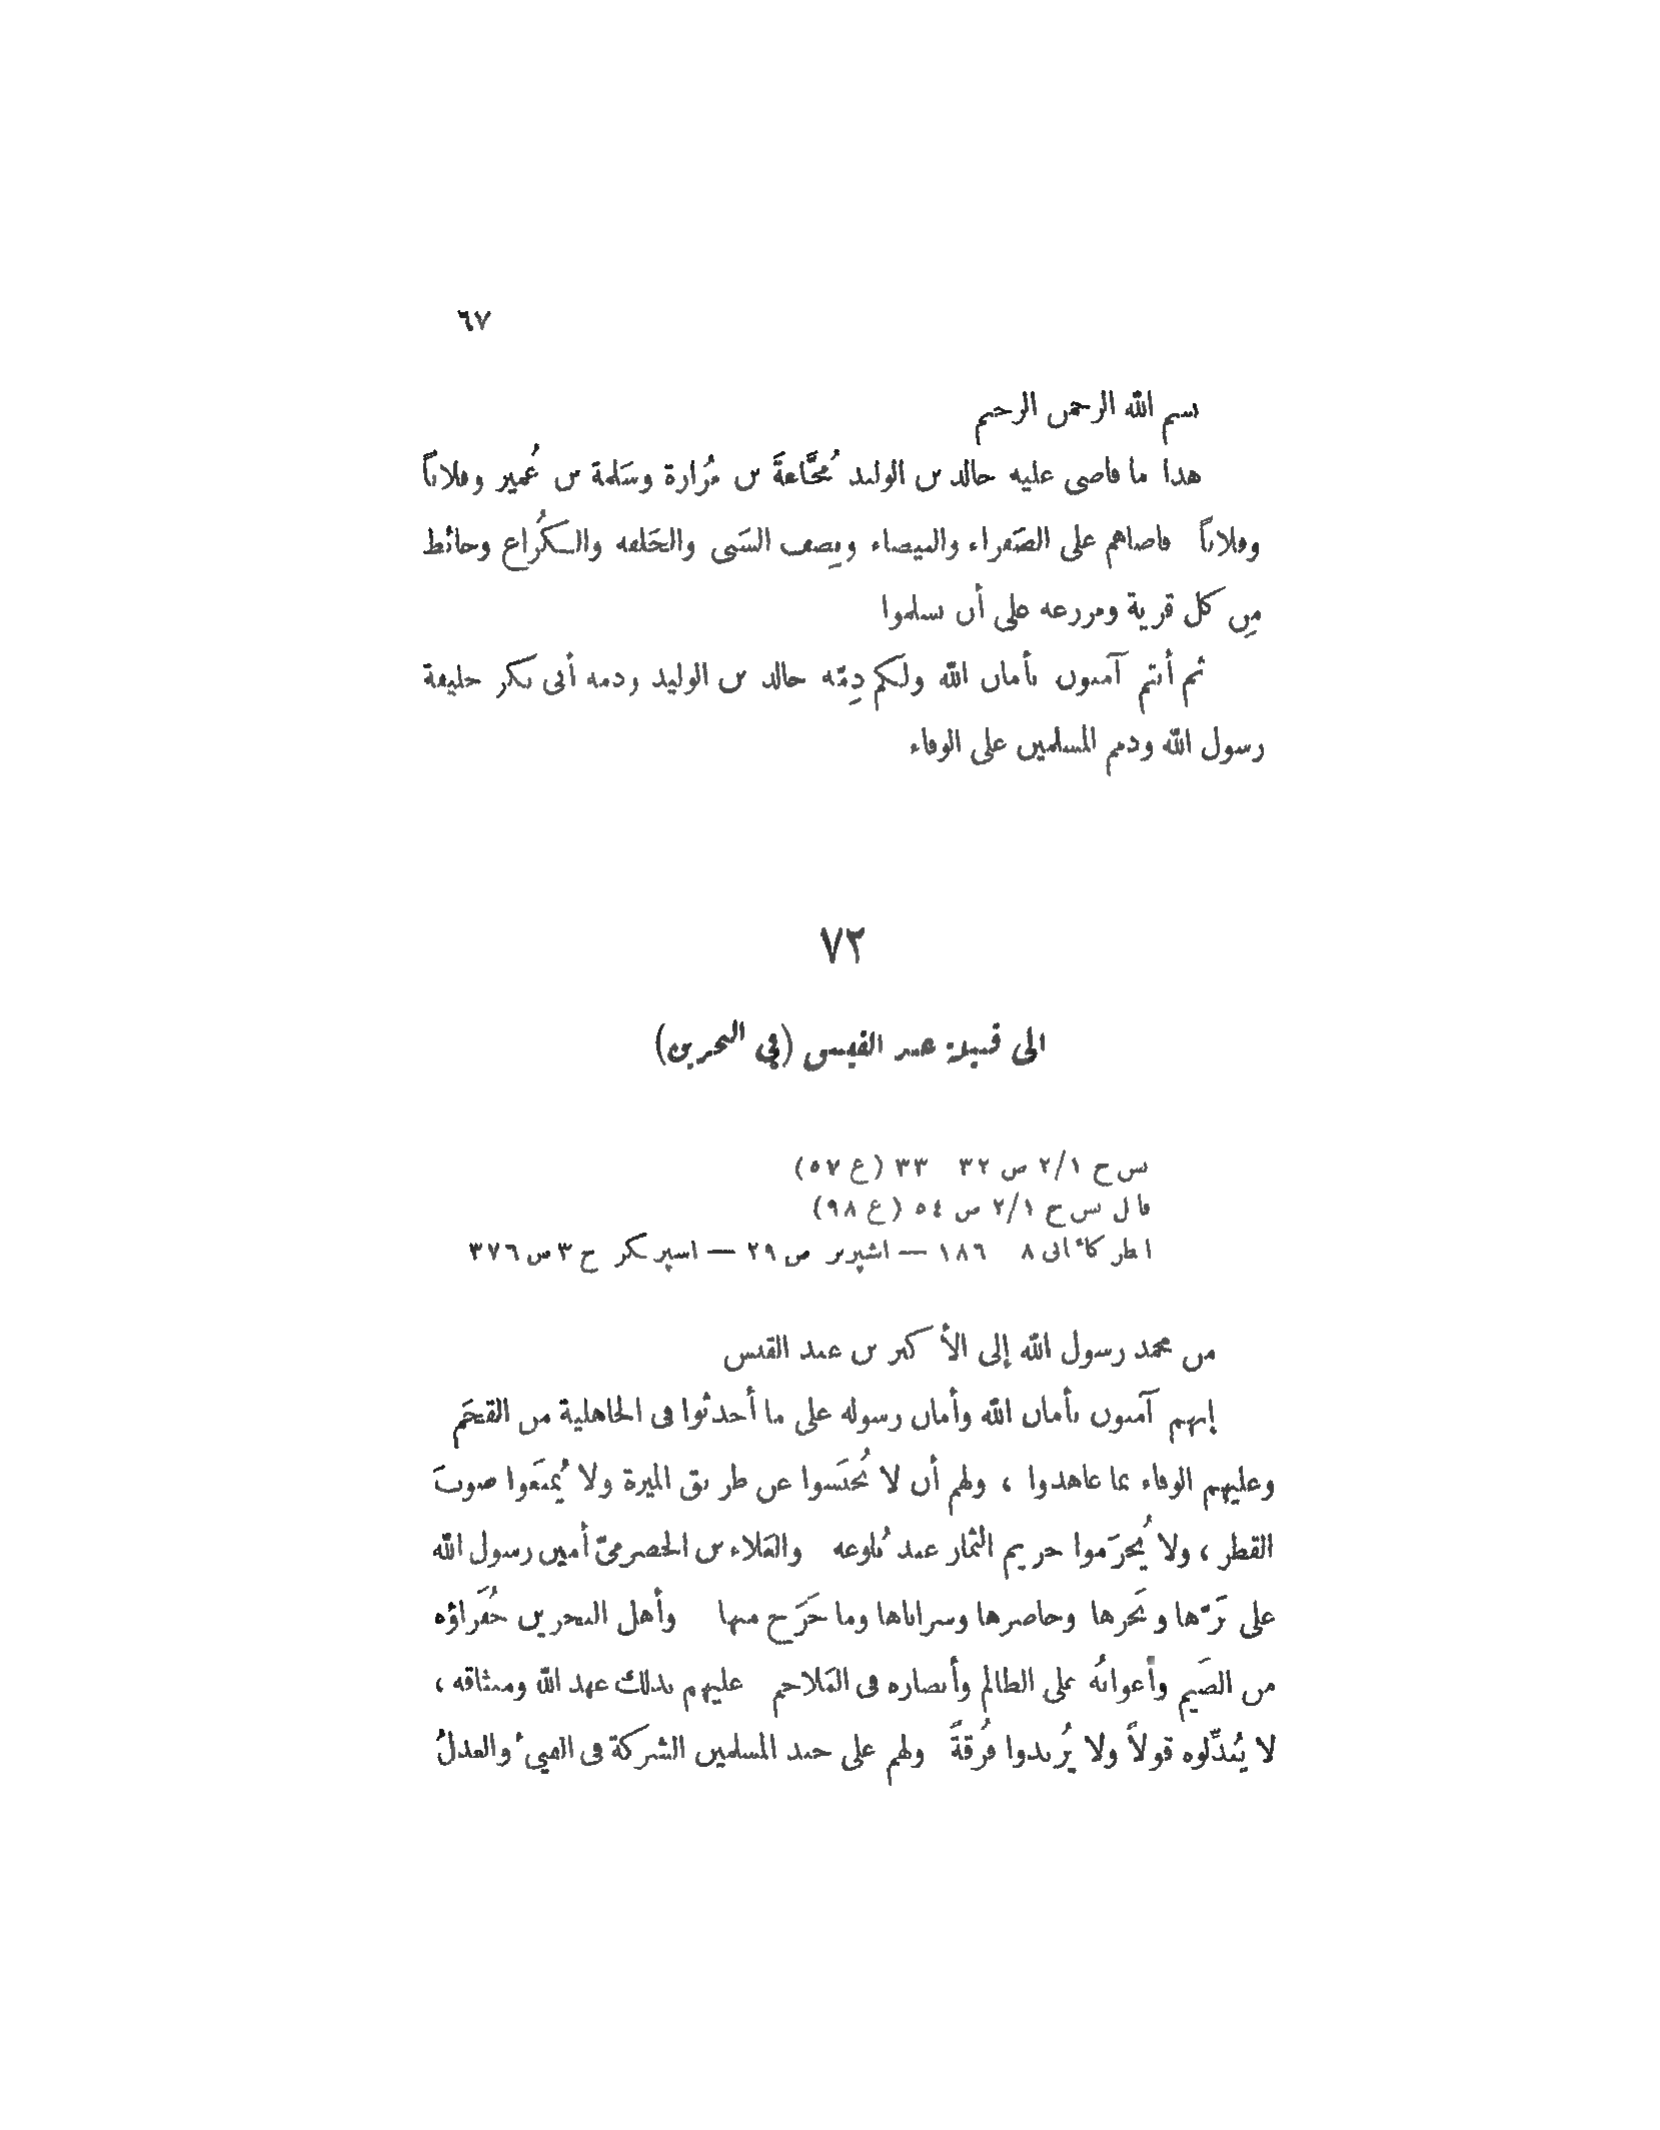 ٦٧
بسم الله الرحمن الرحيم
هذا ما قاضى عليه خالد بن الوليد مُجَّاعةَ بن مُرارة وسَلمة بن عُمير وفلاناً
وفلاناً قاضاهم على الصَفراء والبيضاء ونِصف السَبى والحَلقه والكُراع وحائط
مِن كل قرية ومزرعه على أن يسلموا
ثم أنتم آمنون بأمان الله ولكم ذِمّه خالد بن الوليد وذمه أبى بكر خليفة
رسول الله وذمم المسلمين على الوفاء
٧٢
الى قبيلة عبد القيس (في البحرين)
بس ج ٢/١ ص ٣٢ ٣٣ (ع ٥٧)
قابل بس ج ٢/١ ص ٥٤ (ع ٩٨)
انظر كائتانى ٨ ١٨٦ — اشپربر ص ٢٩ — اسپرنكر ج ٣ ص ٣٧٦
من محمد رسول الله إلى الأكبر بن عبد القيس
إنهم آمنون بأمان الله وأمان رسوله على ما أحدثوا فى الجاهلية من القحَم
وعليهم الوفاء بما عاهدوا ، ولهم أن لا يُحبَسوا عن طريق الميرة ولا يُمنَعوا صوبَ
القطر ، ولا يُحرَموا حريم الثمار عند بُلوغه والعَلاء بن الحضرمىّ أمين رسول الله
على بَرّها وبَحرها وحاضرها وسراياها وما خَرَج منها وأهل البحرين خُفَراؤه
من الضَيم وأعوانُه على الظالم وأنصاره فى المَلاحم عليهم بذلك عهد الله وميثاقه ،
لا يُبدِّلوه قولاً ولا يُريدوا فُرقةً ولهم على جند المسلمين الشركة فى الفيئ والعدلُ